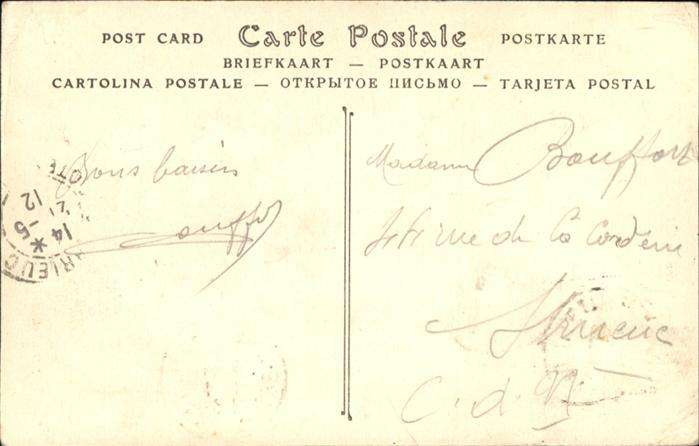 POST CARD Carte Postale POSTKARTE
BRIEFKAART — POSTKAART
CARTOLINA POSTALE — ОТКРЫТОЕ ПИСЬМО — TARJETA POSTAL
Bons baisers
Bouffort
RIEUC
14 -5
12
Madame Bouffort
rue de la Corderie
St Brieuc
C. d. N.